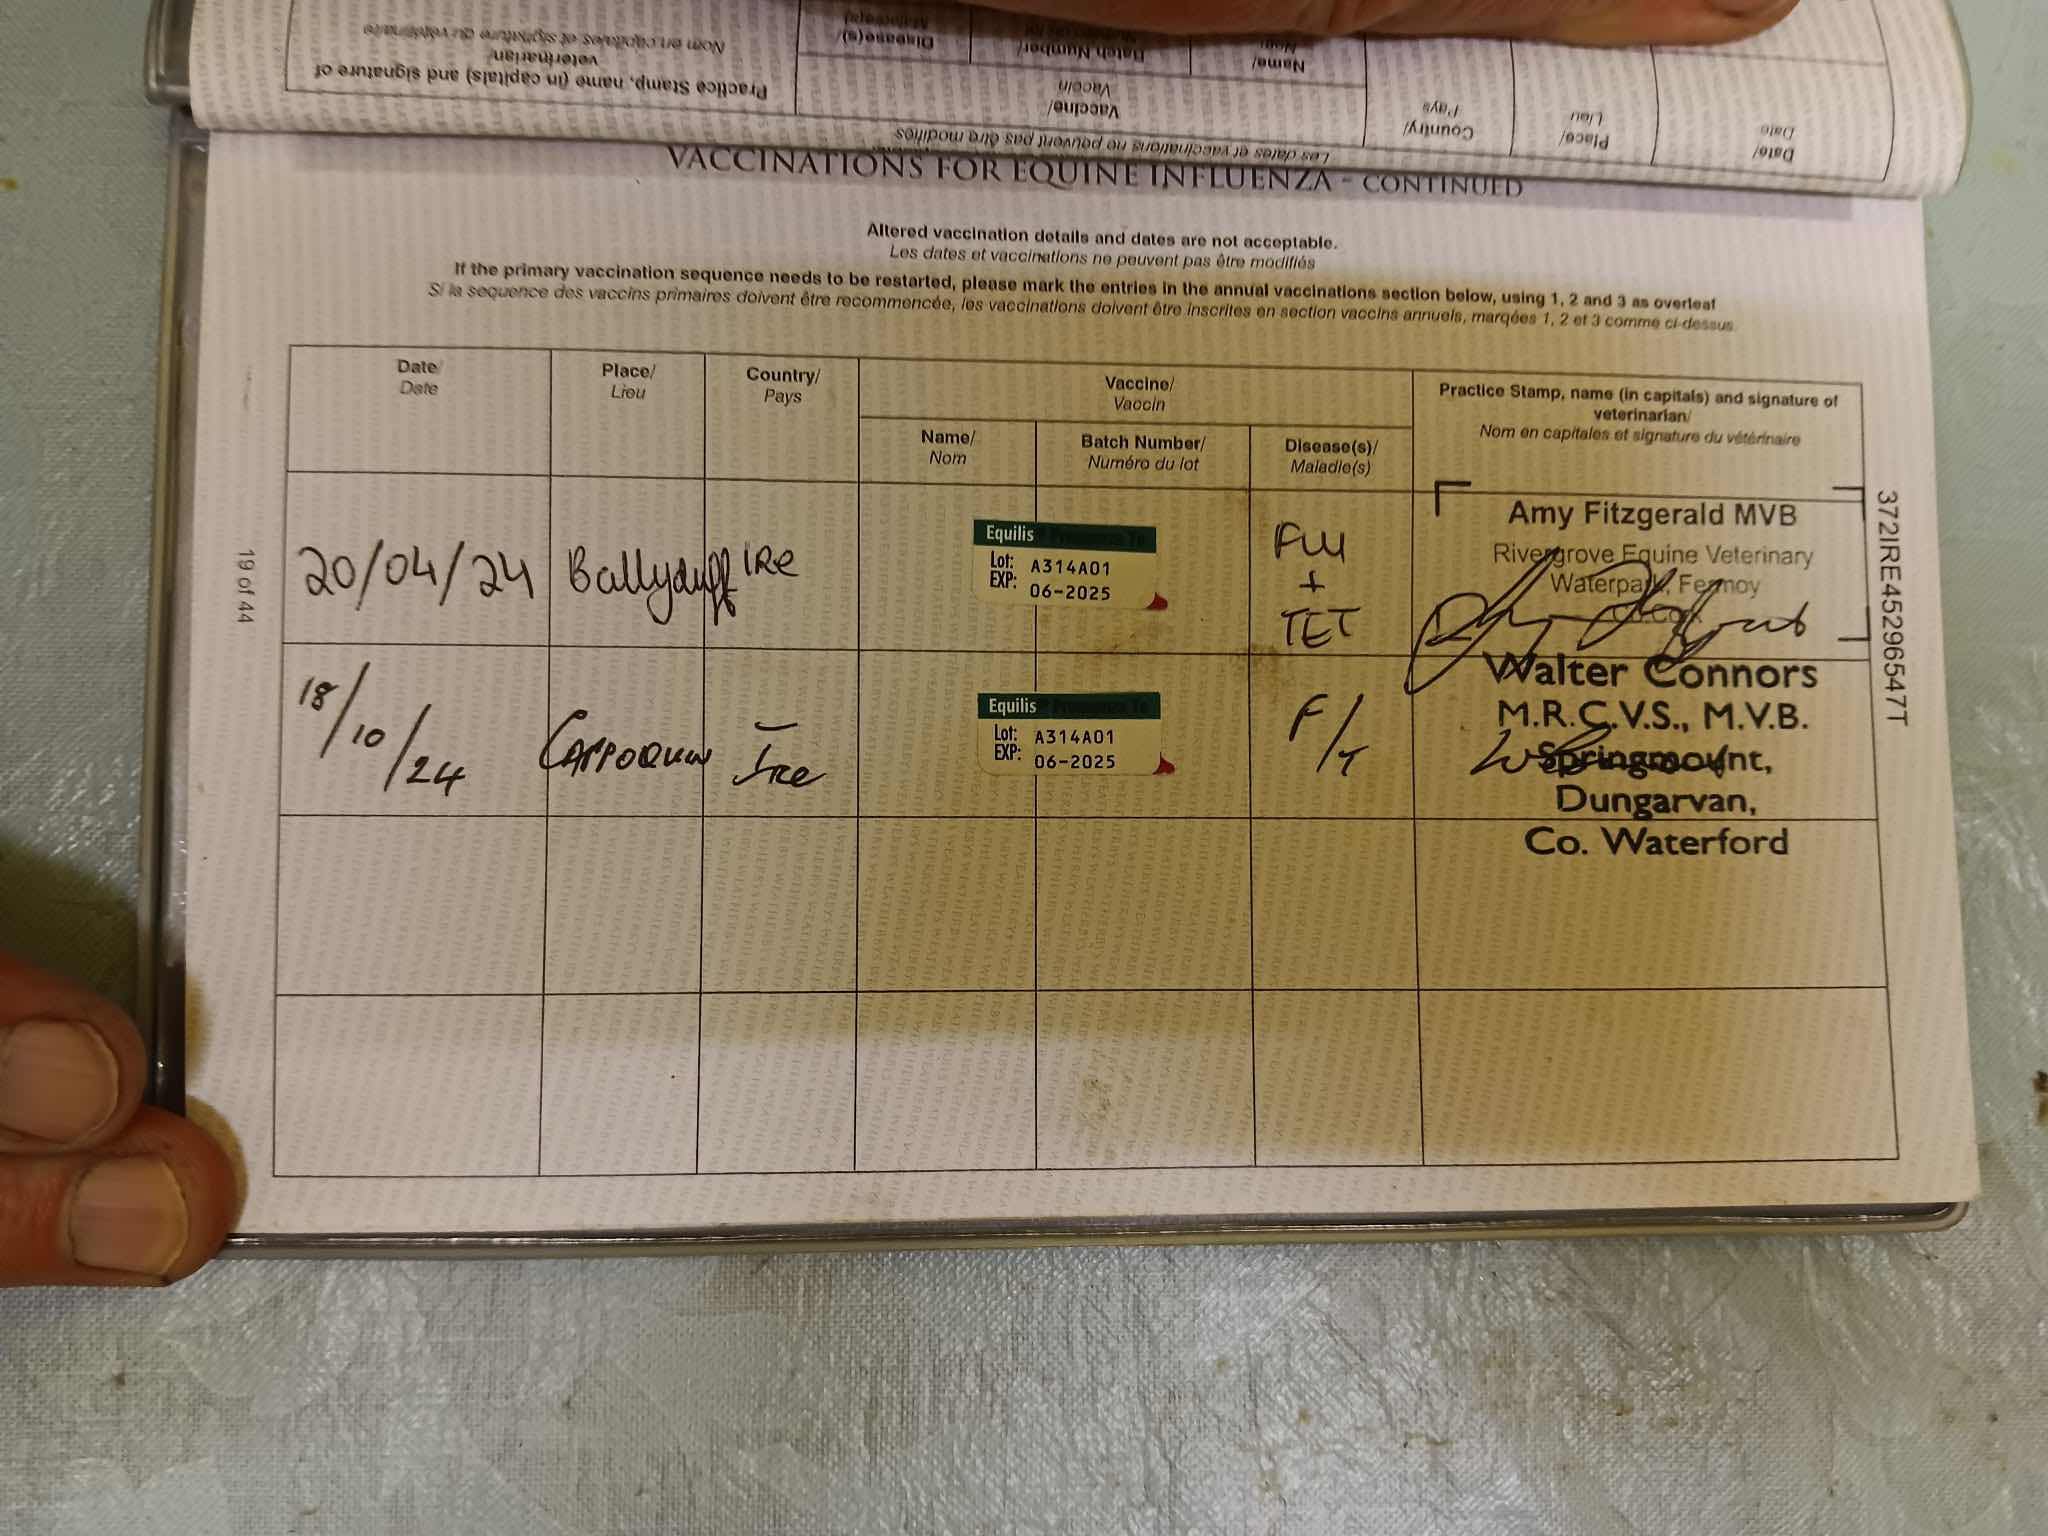 Practice Stamp, name (in capitals) and signature of
veterinarian/
Nom en capitales et signature du vétérinaire
Vaccine/
Vaccin
Name/
Batch Number/
Disease(s)/
Country/
Pays
Place/
Lieu
Date/
Date
Les dates et vaccinations ne peuvent pas être modifiés
VACCINATIONS FOR EQUINE INFLUENZA - CONTINUED
Altered vaccination details and dates are not acceptable.
Les dates et vaccinations ne peuvent pas être modifiés
If the primary vaccination sequence needs to be restarted, please mark the entries in the annual vaccinations section below, using 1, 2 and 3 as overleaf
Si la sequence des vaccins primaires doivent être recommencée, les vaccinations doivent être inscrites en section vaccins annuels, marqées 1, 2 et 3 comme ci-dessus.
Date/
Date
Place/
Lieu
Country/
Pays
Vaccine/
Vaccin
Name/
Nom
Batch Number/
Numéro du lot
Disease(s)/
Maladie(s)
Practice Stamp, name (in capitals) and signature of
veterinarian/
Nom en capitales et signature du vétérinaire
20/04/24
Ballyduff
IRe
Equilis
Lot: A314A01
EXP: 06-2025
FLU
+
TET
Amy Fitzgerald MVB
Rivergrove Equine Veterinary
Waterpark, Fermoy
Co. Cork
18/10/24
CAPPOQUIN
Ire
Equilis
Lot: A314A01
EXP: 06-2025
F/T
Walter Connors
M.R.C.V.S., M.V.B.
Springmount,
Dungarvan,
Co. Waterford
19 of 44
372IRE45296547T